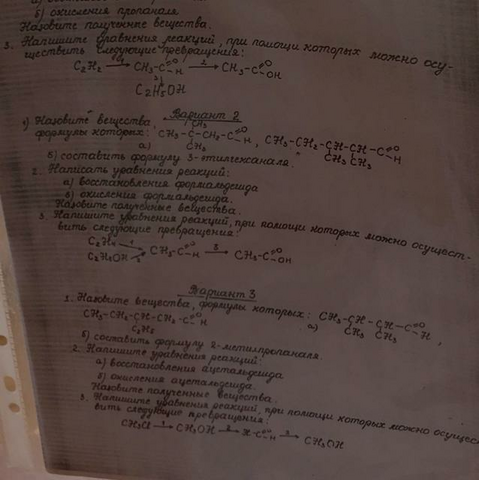 б) окисления пропаналя.
Назовите полученные вещества.
3. Напишите уравнения реакций, при помощи которых можно осу-
ществить следующие превращения:
C₂H₂ → CH₃-C=O H 2→ CH₃-C=O OH
C₂H₅OH
Вариант 2
1) Назовите вещества,
формулы которых: CH₃-C-CH₂-C=O H, CH₃-CH₂-CH-CH-C=O H
а) CH₃ CH₃ CH₃
б) составить формулу 3-этилгексаналя.
2. Написать уравнения реакций:
а) восстановления формальдегида
в) окисления формальдегида.
Назовите полученные вещества.
3. Напишите уравнения реакций, при помощи которых можно осущест-
вить следующие превращения:
C₂H₄ 1→
C₂H₅OH → CH₃-C=O H 3→ CH₃-C=O OH
Вариант 3
1. Назовите вещества, формулы которых: CH₃-CH-CH-C=O H,
а) CH₃ CH₃
CH₃-CH₂-CH-CH₂-C=O H
C₂H₅
б) составить формулу 2-метилпропаналя.
2. Напишите уравнения реакций:
а) восстановления ацетальдегида
б) окисления ацетальдегида.
Назовите полученные вещества.
3. Напишите уравнения реакций, при помощи которых можно осущес
вить следующие превращения:
CH₃Cl 1→ CH₃OH 2→ H-C=O H 3→ CH₃OH